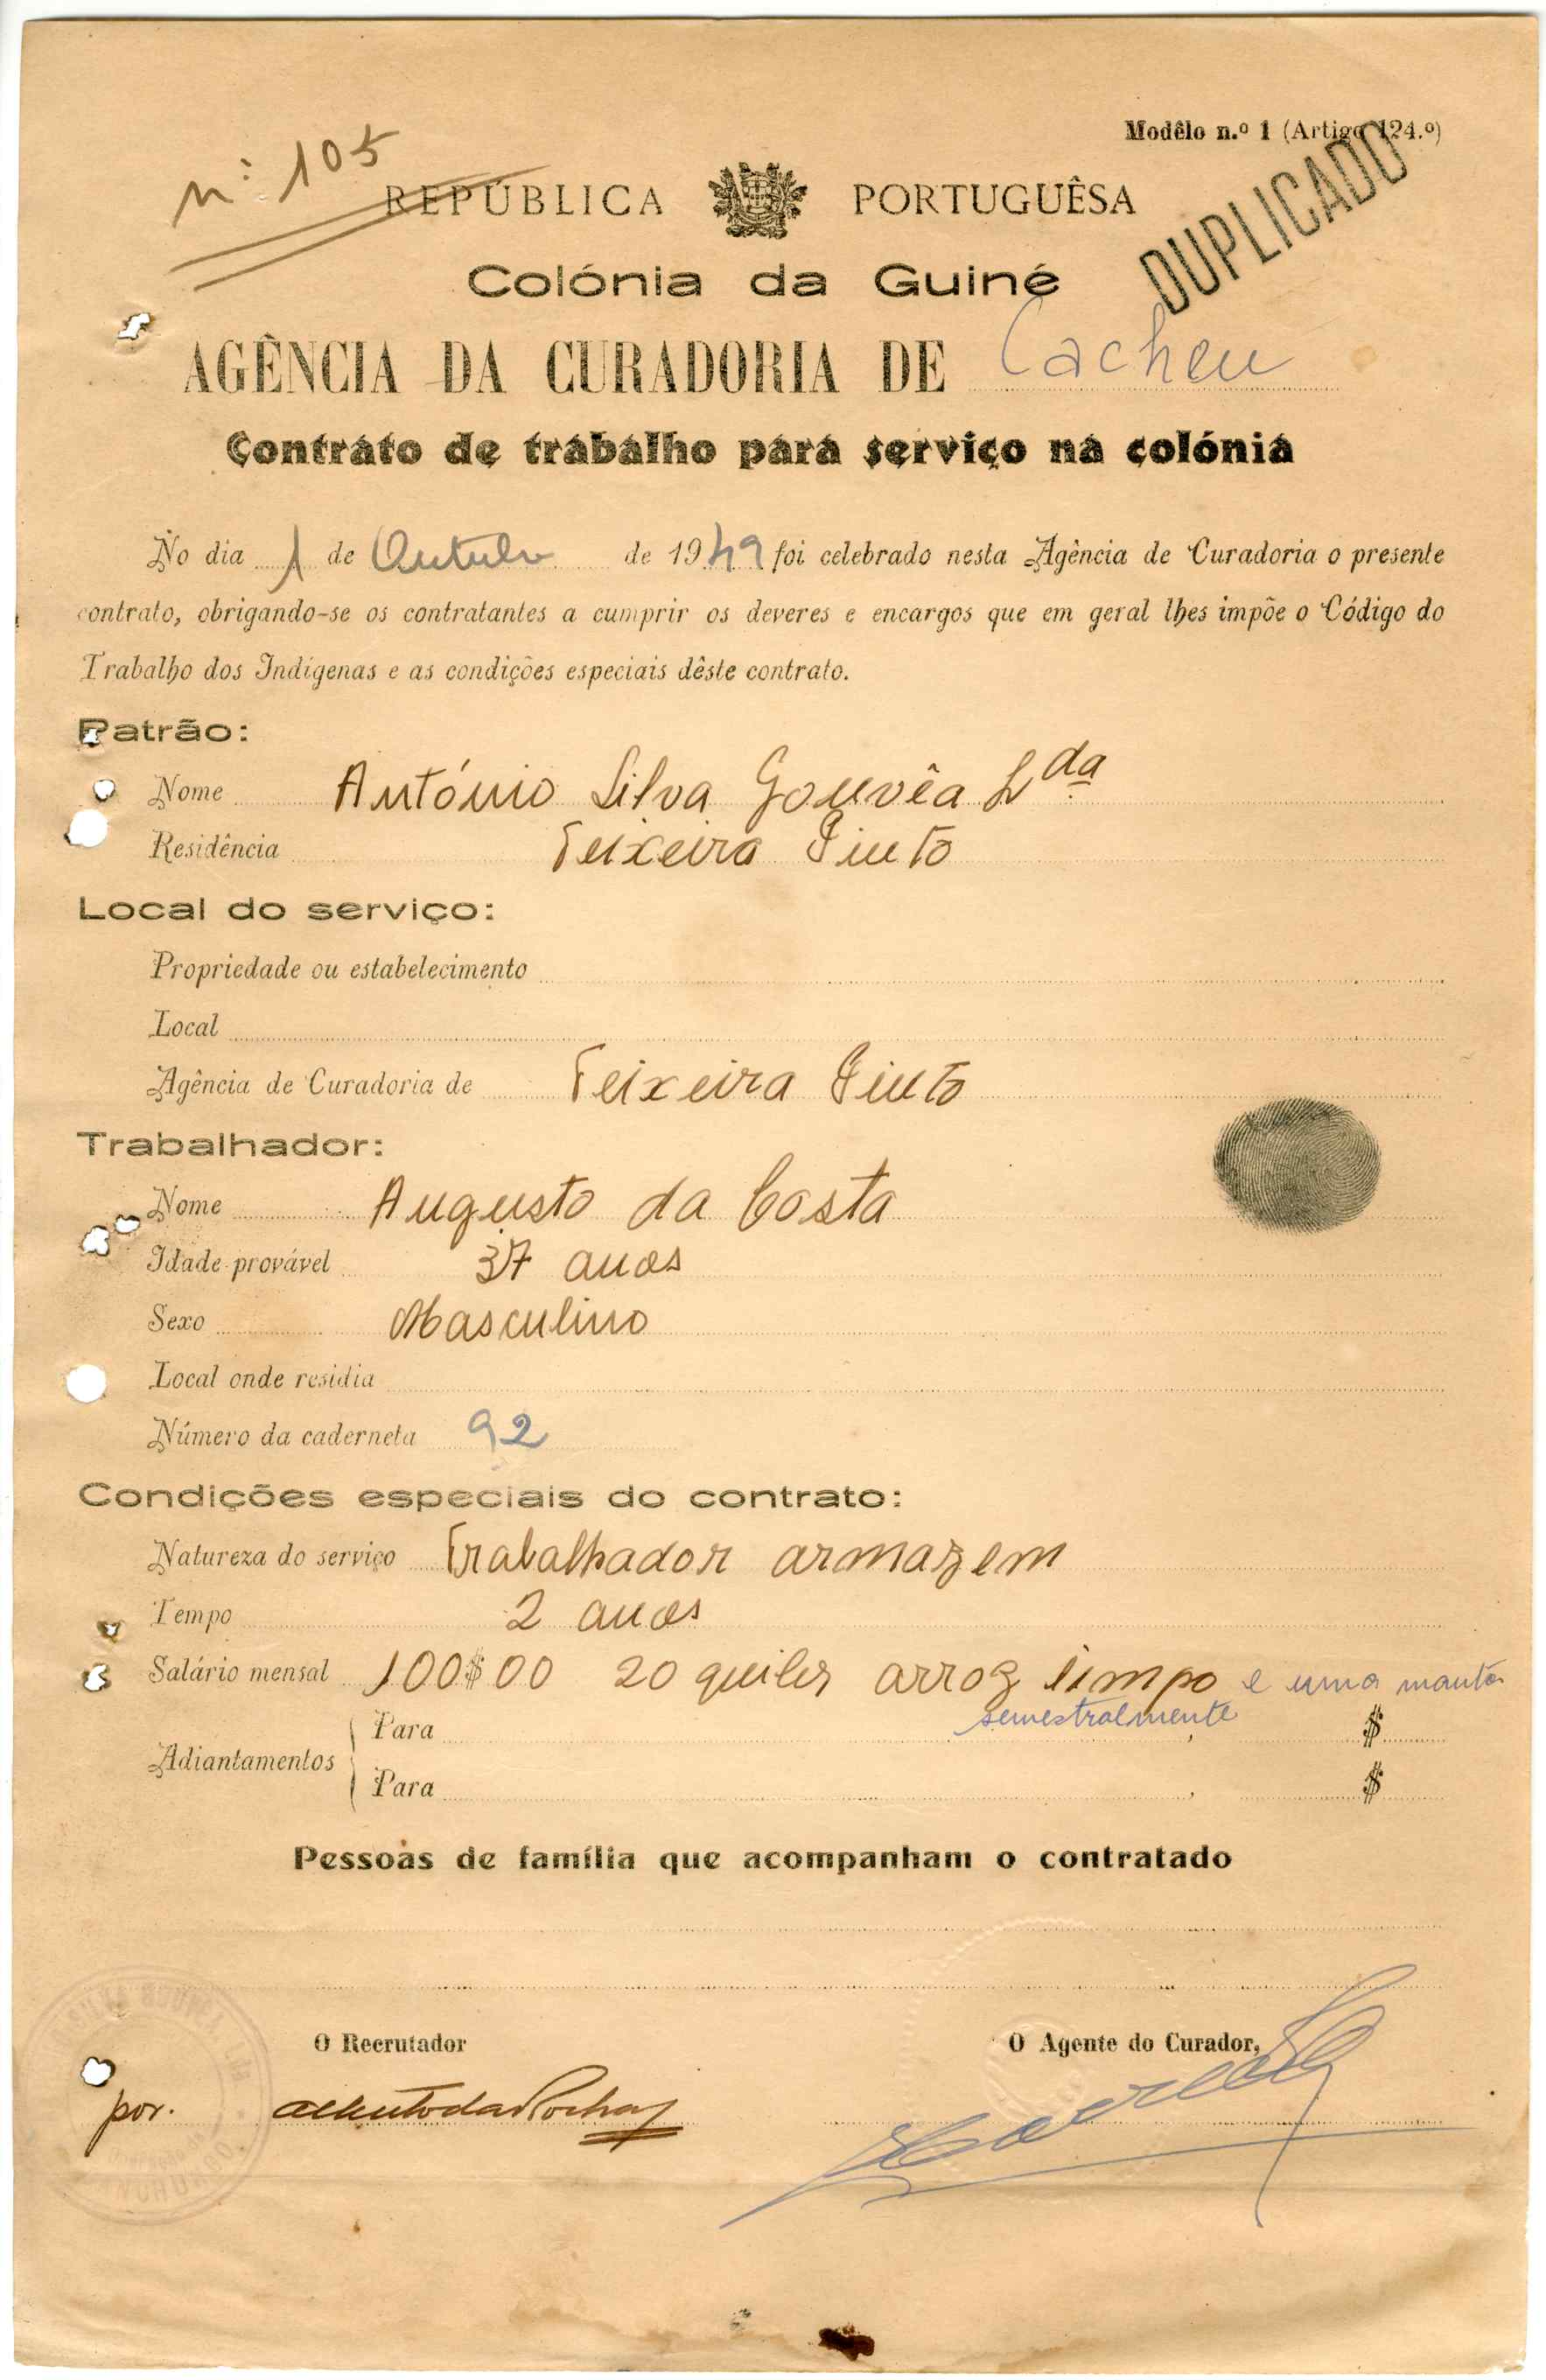 Modêlo n.º 1 (Artigo 124.º)
n: 105
REPÚBLICA PORTUGUÊSA
DUPLICADO
Colónia da Guiné
AGÊNCIA DA CURADORIA DE Cacheu
Contrato de trabalho para serviço na colónia
No dia 1 de Outubro de 1949 foi celebrado nesta Agência de Curadoria o presente
contrato, obrigando-se os contratantes a cumprir os deveres e encargos que em geral lhes impõe o Código do
Trabalho dos Indígenas e as condições especiais dêste contrato.
Patrão:
Nome António Silva Gouvêa Lda
Residência Teixeira Pinto
Local do serviço:
Propriedade ou estabelecimento
Local
Agência de Curadoria de Teixeira Pinto
Trabalhador:
Nome Augusto da Costa
Idade provável 37 anos
Sexo Masculino
Local onde residia
Número da caderneta 92
Condições especiais do contrato:
Natureza do serviço Trabalhador armazem
Tempo 2 anos
Salário mensal 100$00 20 quilos arroz limpo e uma manta
semestralmente
Adiantamentos
Para $
Para $
Pessoas de família que acompanham o contratado
O Recrutador
O Agente do Curador,
por.